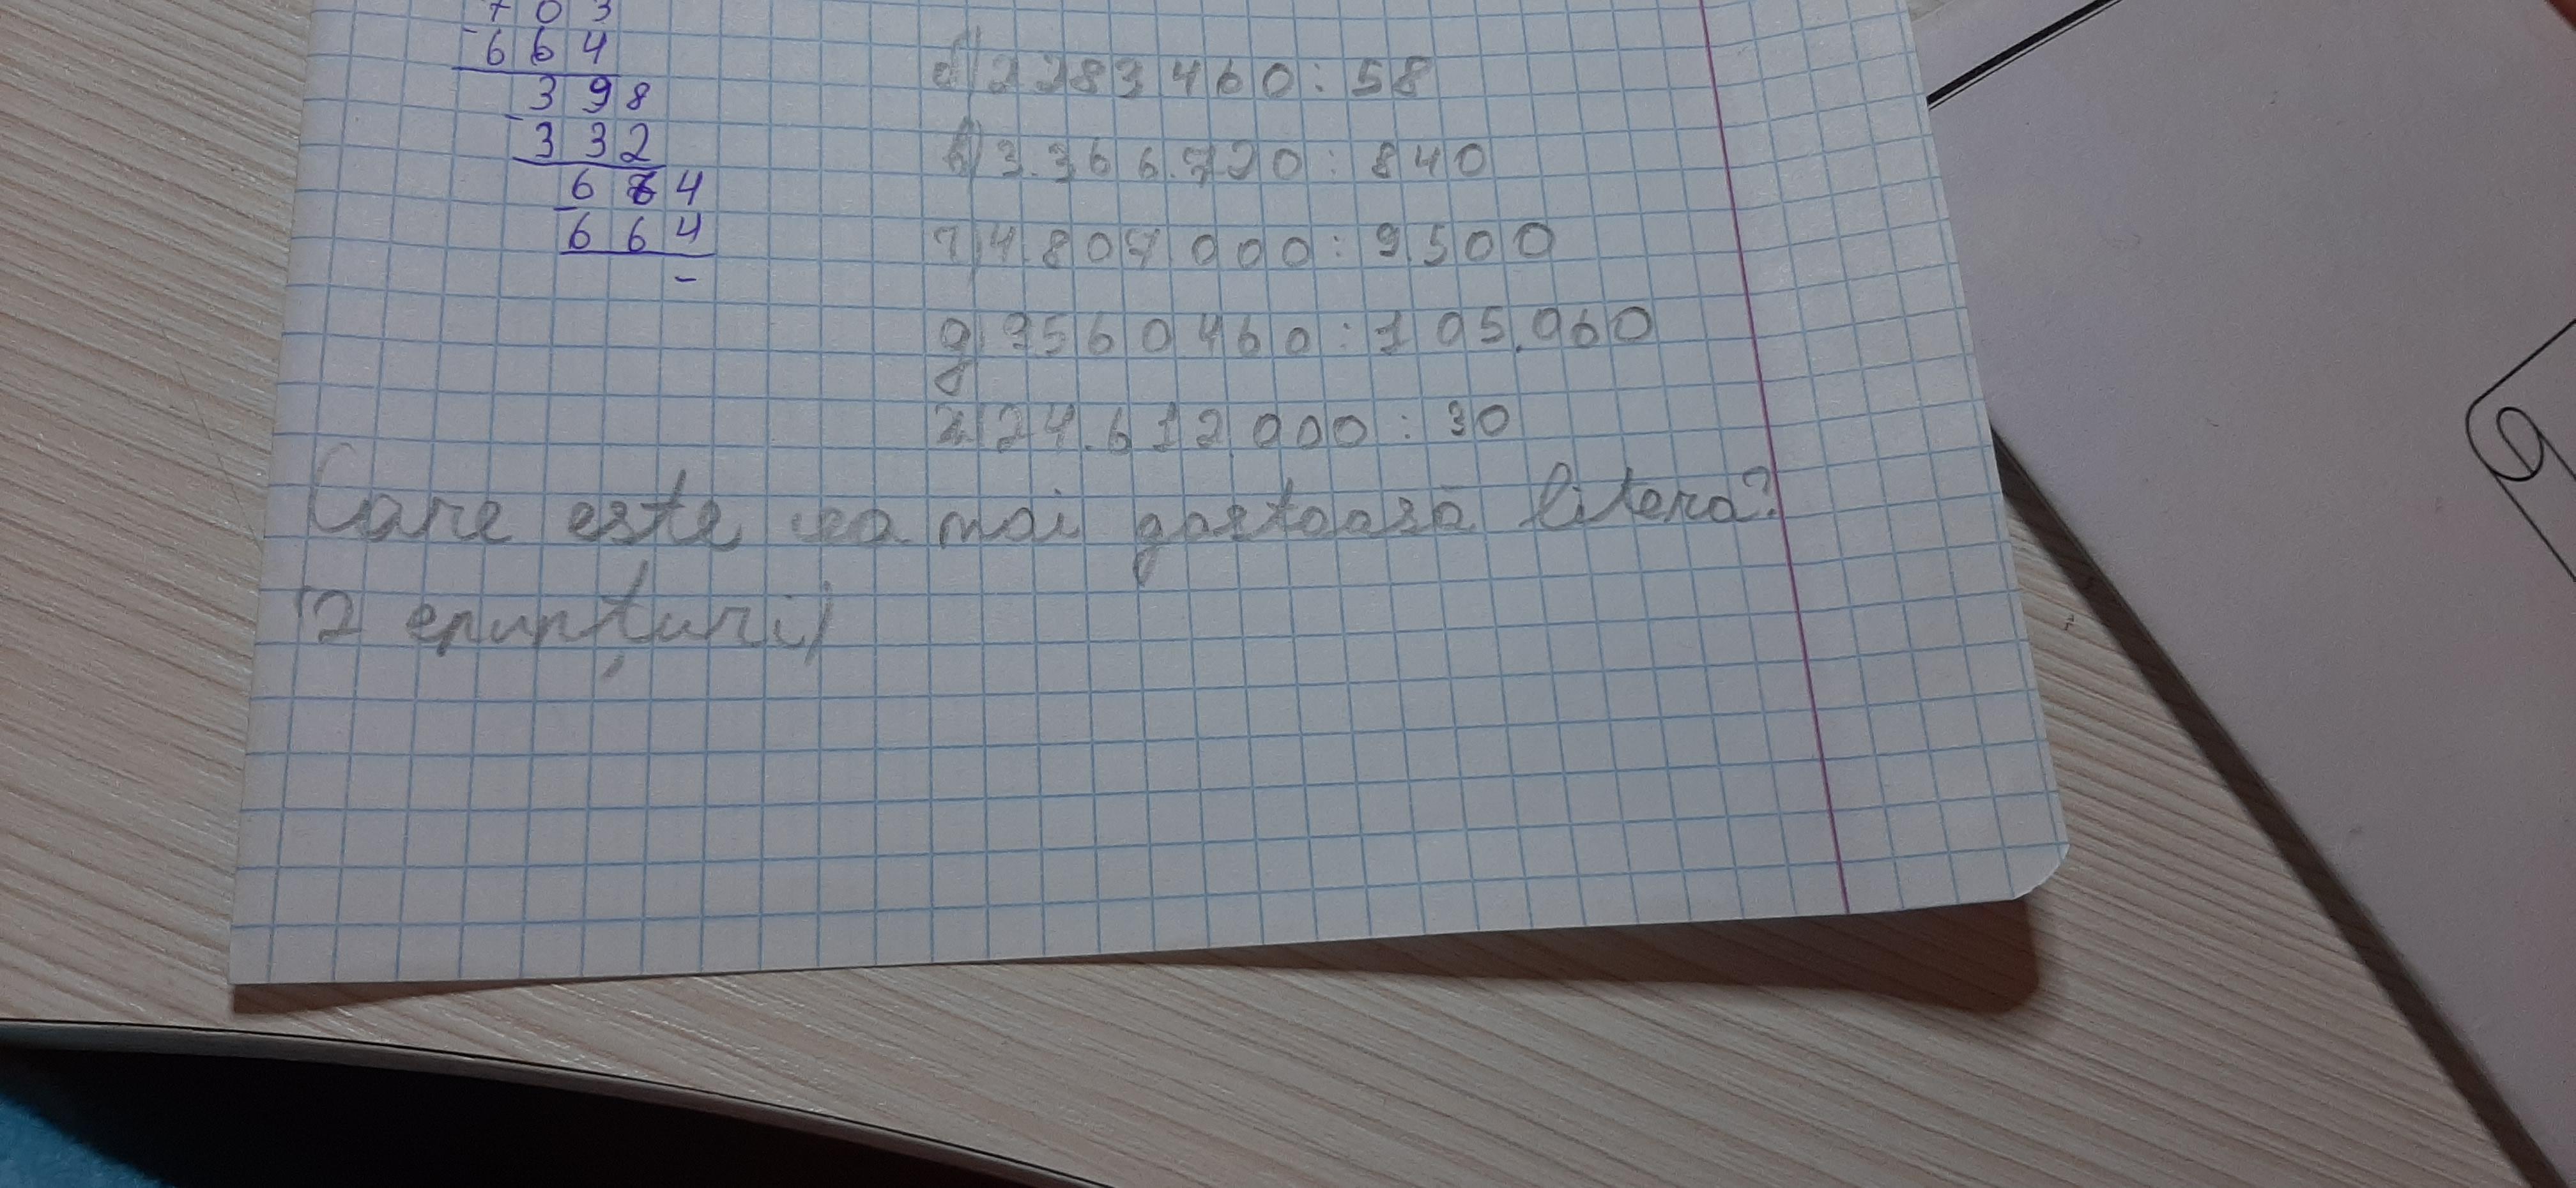 703
- 664
398
- 332
664
664
-
б) 2283460:58
в) 3.366.720:840
г) 4.807000:9.500
д) 7560460:105.060
ж) 24.612.000:30
Care este cea mai gostoasă litera?
(2 enunțuri)
9